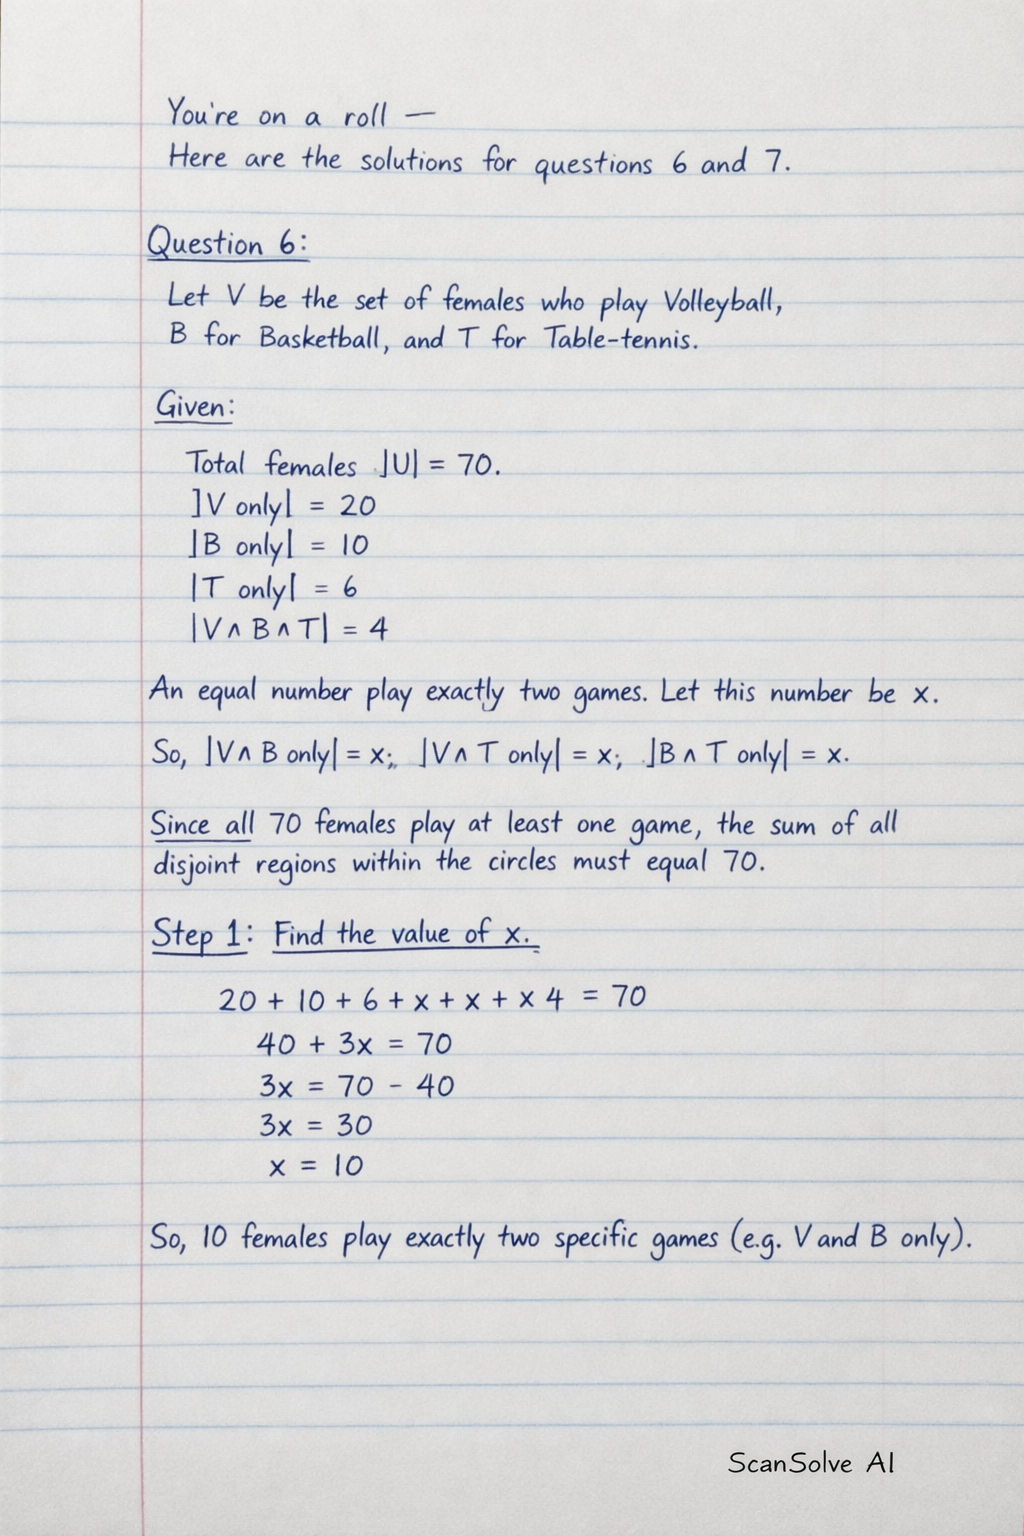 You're on a roll —
Here are the solutions for questions 6 and 7.
Question 6:
Let V be the set of females who play Volleyball,
B for Basketball, and T for Table-tennis.
Given:
Total females |U| = 70.
]V only| = 20
|B only| = 10
|T only| = 6
|V ∧ B ∧ T| = 4
An equal number play exactly two games. Let this number be x.
So, |V ∧ B only| = x; |V ∧ T only| = x; |B ∧ T only| = x.
Since all 70 females play at least one game, the sum of all
disjoint regions within the circles must equal 70.
Step 1: Find the value of x.
20 + 10 + 6 + x + x + x 4 = 70
40 + 3x = 70
3x = 70 - 40
3x = 30
x = 10
So, 10 females play exactly two specific games (e.g. V and B only).
ScanSolve AI